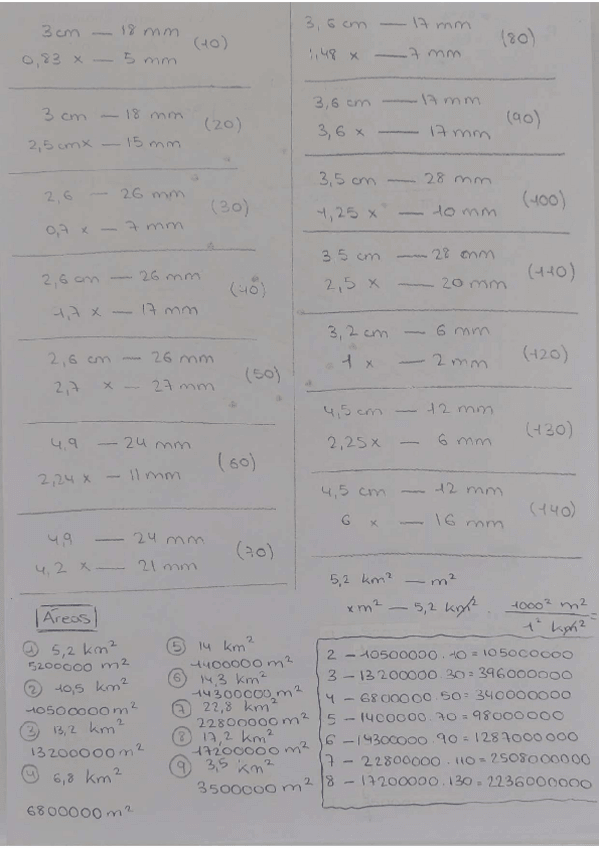 3cm — 18 mm (10)
0,83 x — 5 mm
3 cm — 18 mm (20)
2,5cmx — 15 mm
2,6 — 26 mm (30)
0,7 x — 7 mm
2,6 cm — 26 mm (40)
1,7 x — 17 mm
2,6 cm — 26 mm (50)
2,7 x — 27 mm
4,9 — 24 mm (60)
2,24 x — 11 mm
4,9 — 24 mm (70)
4,2 x — 21 mm
Áreas
① 5,2 km²
5200000 m²
② 10,5 km²
10500000 m²
③ 13,2 km²
13200000 m²
④ 6,8 km²
6800000 m²
⑤ 14 km²
1400000 m²
⑥ 14,3 km²
14300000 m²
⑦ 22,8 km²
22800000 m²
⑧ 17,2 km²
17200000 m²
⑨ 3,5 km²
3500000 m²
3,6 cm — 17 mm (80)
1,48 x — 7 mm
3,6 cm — 17 mm (90)
3,6 x — 17 mm
3,5 cm — 28 mm (100)
1,25 x — 10 mm
3 5 cm — 28 mm (110)
2,5 x — 20 mm
3,2 cm — 6 mm (120)
1 x — 2 mm
4,5 cm — 12 mm (130)
2,25x — 6 mm
4,5 cm — 12 mm (140)
6 x — 16 mm
5,2 km² — m²
x m² — 5,2 km² . 1000² m² / 1² km² =
2 – 10500000 . 10 = 105000000
3 – 13200000 . 30 = 396000000
4 – 6800000 . 50 = 340000000
5 – 1400000 . 70 = 98000000
6 – 14300000 . 90 = 1287000000
7 – 22800000 . 110 = 2508000000
8 – 17200000 . 130 = 2236000000